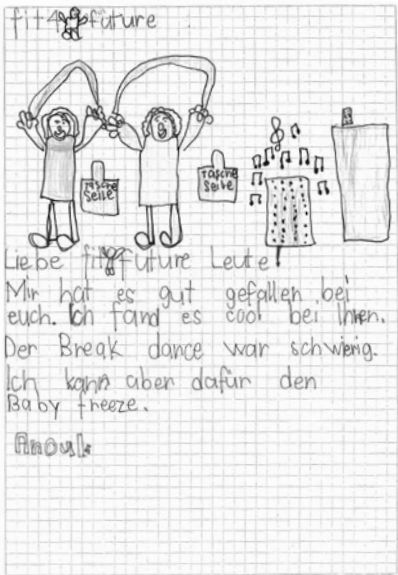 fit4future
Tasche
Seile
Tasche
Seile
Liebe fit4future Leute
Mir hat es gut gefallen bei
euch. Ich fand es cool bei Ihnen.
Der Break dance war schwierig.
Ich kann aber dafür den
Baby freeze.
Anouk